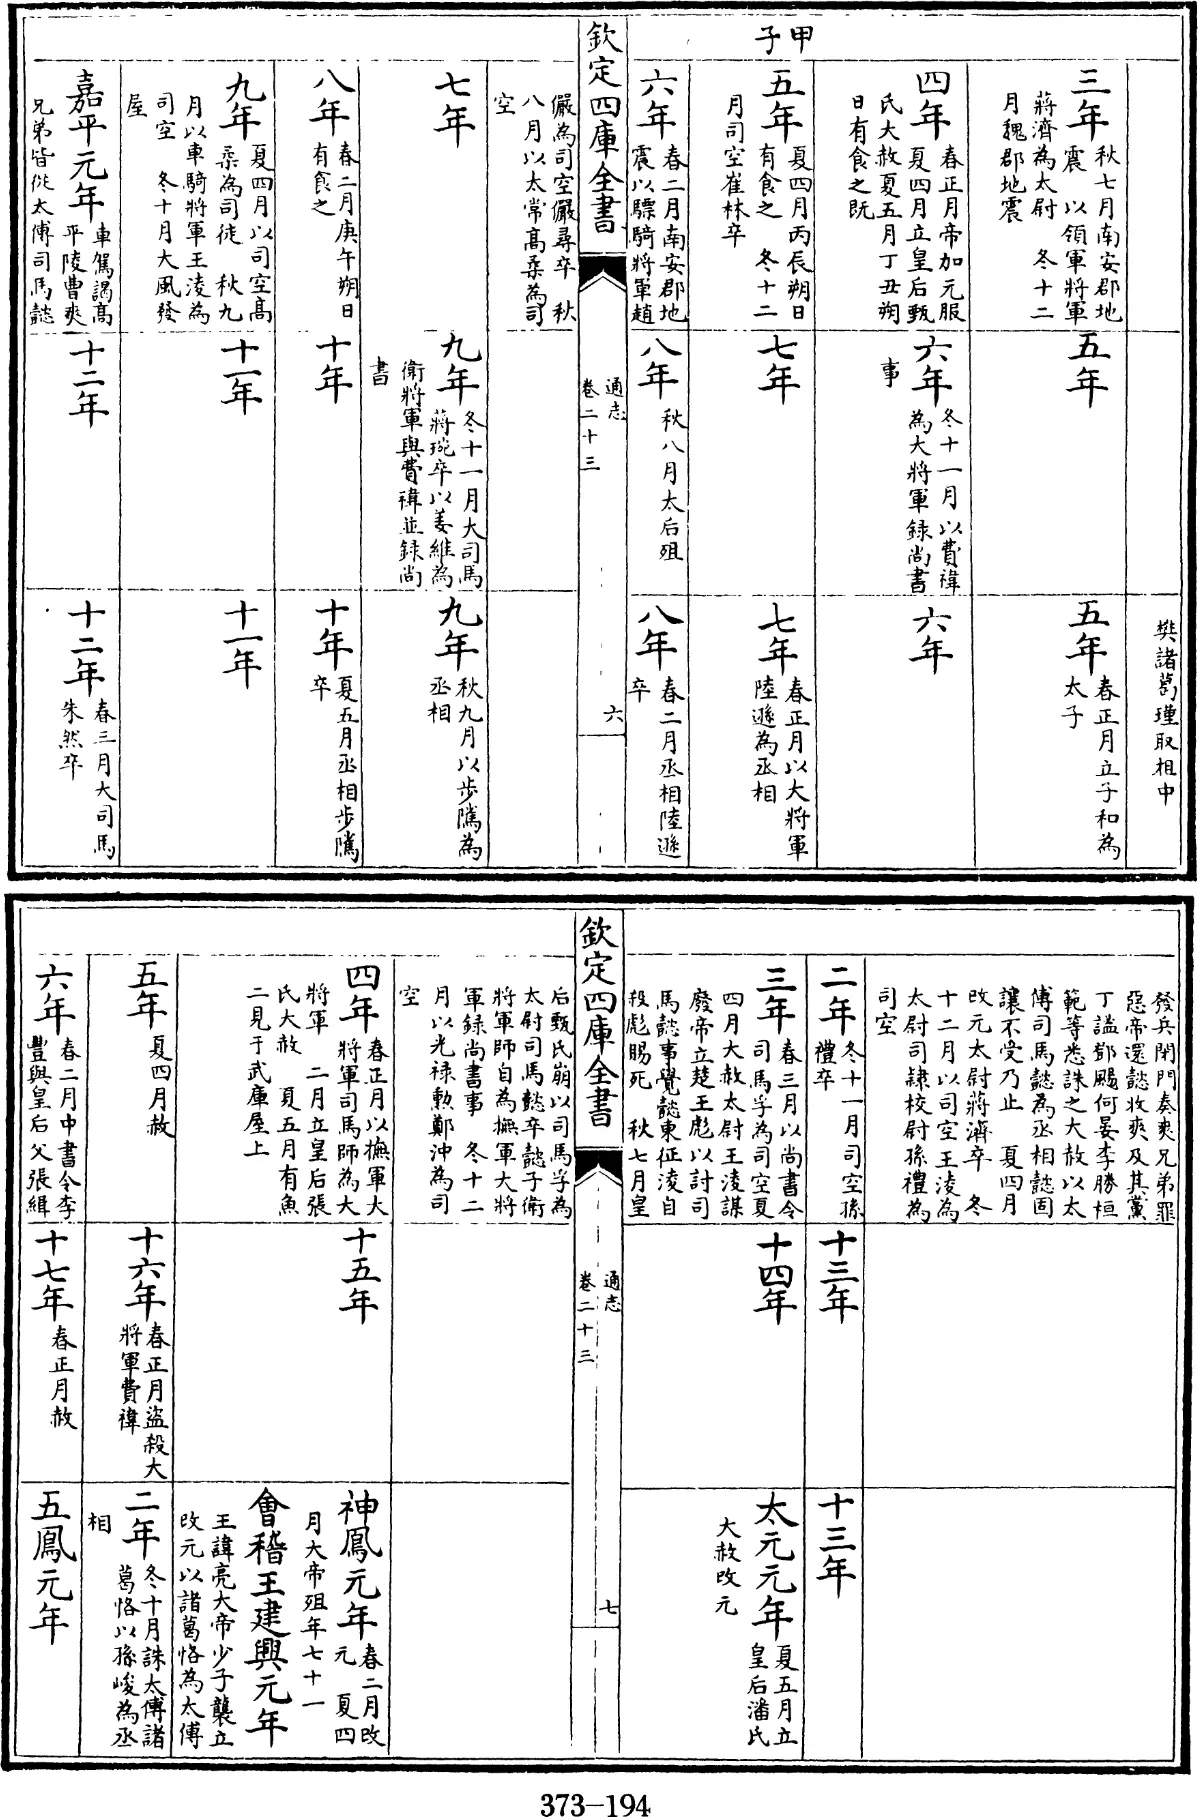 甲子
樊諸葛瑾取柤中
三年
秋七月南安郡地
震 以領軍將軍
蔣濟為太尉 冬十二
月魏郡地震
五年
五年
春正月立子和為
太子
四年
春正月帝加元服
夏四月立皇后甄
氏大赦夏五月丁丑朔
日有食之既
六年
冬十一月以費禕
為大將軍録尚書
事
六年
五年
夏四月丙辰朔日
有食之 冬十二
月司空崔林卒
七年
七年
春正月以大將軍
陸遜為丞相
六年
春二月南安郡地
震以驃騎將軍趙
八年
秋八月太后殂
八年
春二月丞相陸遜
卒
欽定四庫全書
通志
卷二十三
六
儼為司空儼尋卒 秋
八月以太常髙柔為司
空
七年
九年
冬十一月大司馬
蔣琬卒以姜維為
衛將軍與費禕並録尚
書
九年
秋九月以步隲為
丞相
八年
春二月庚午朔日
有食之
十年
十年
夏五月丞相步隲
卒
九年
夏四月以司空髙
柔為司徒 秋九
月以車騎將軍王淩為
司空 冬十月大風發
屋
十一年
十一年
嘉平元年
車駕謁髙
平陵曹爽
兄弟皆従太傅司馬懿
十二年
十二年
春三月大司馬
朱然卒
發兵閉門奏爽兄弟罪
惡帝還懿收爽及其黨
丁謐鄧颺何晏李勝桓
範等悉誅之大赦以太
傅司馬懿為丞相懿固
讓不受乃止 夏四月
改元太尉蔣濟卒 冬
十二月以司空王淩為
太尉司隷校尉孫禮為
司空
二年
冬十一月司空孫
禮卒
十三年
十三年
三年
春三月以尚書令
司馬孚為司空夏
四月大赦太尉王淩謀
廢帝立楚王彪以討司
馬懿事覺懿東征淩自
殺彪賜死 秋七月皇
十四年
太元元年
夏五月立
皇后潘氏
大赦改元
欽定四庫全書
通志
卷二十三
七
后甄氏崩以司馬孚為
太尉司馬懿卒懿子衛
將軍師自為撫軍大將
軍録尚書事 冬十二
月以光禄勲鄭沖為司
空
四年
春正月以撫軍大
將軍司馬師為大
將軍 二月立皇后張
氏大赦 夏五月有魚
二見于武庫屋上
十五年
神鳳元年
春二月改
元 夏四
月大帝殂年七十一
會稽王建興元年
王諱亮大帝少子襲立
改元以諸葛恪為太傅
五年
夏四月赦
十六年
春正月盜殺大
將軍費禕
二年
冬十月誅太傅諸
葛恪以孫峻為丞
相
六年
春二月中書令李
豐與皇后父張緝
十七年
春正月赦
五鳳元年
373-194